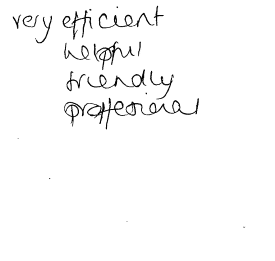 very efficient
helpful
friendly
proffesional